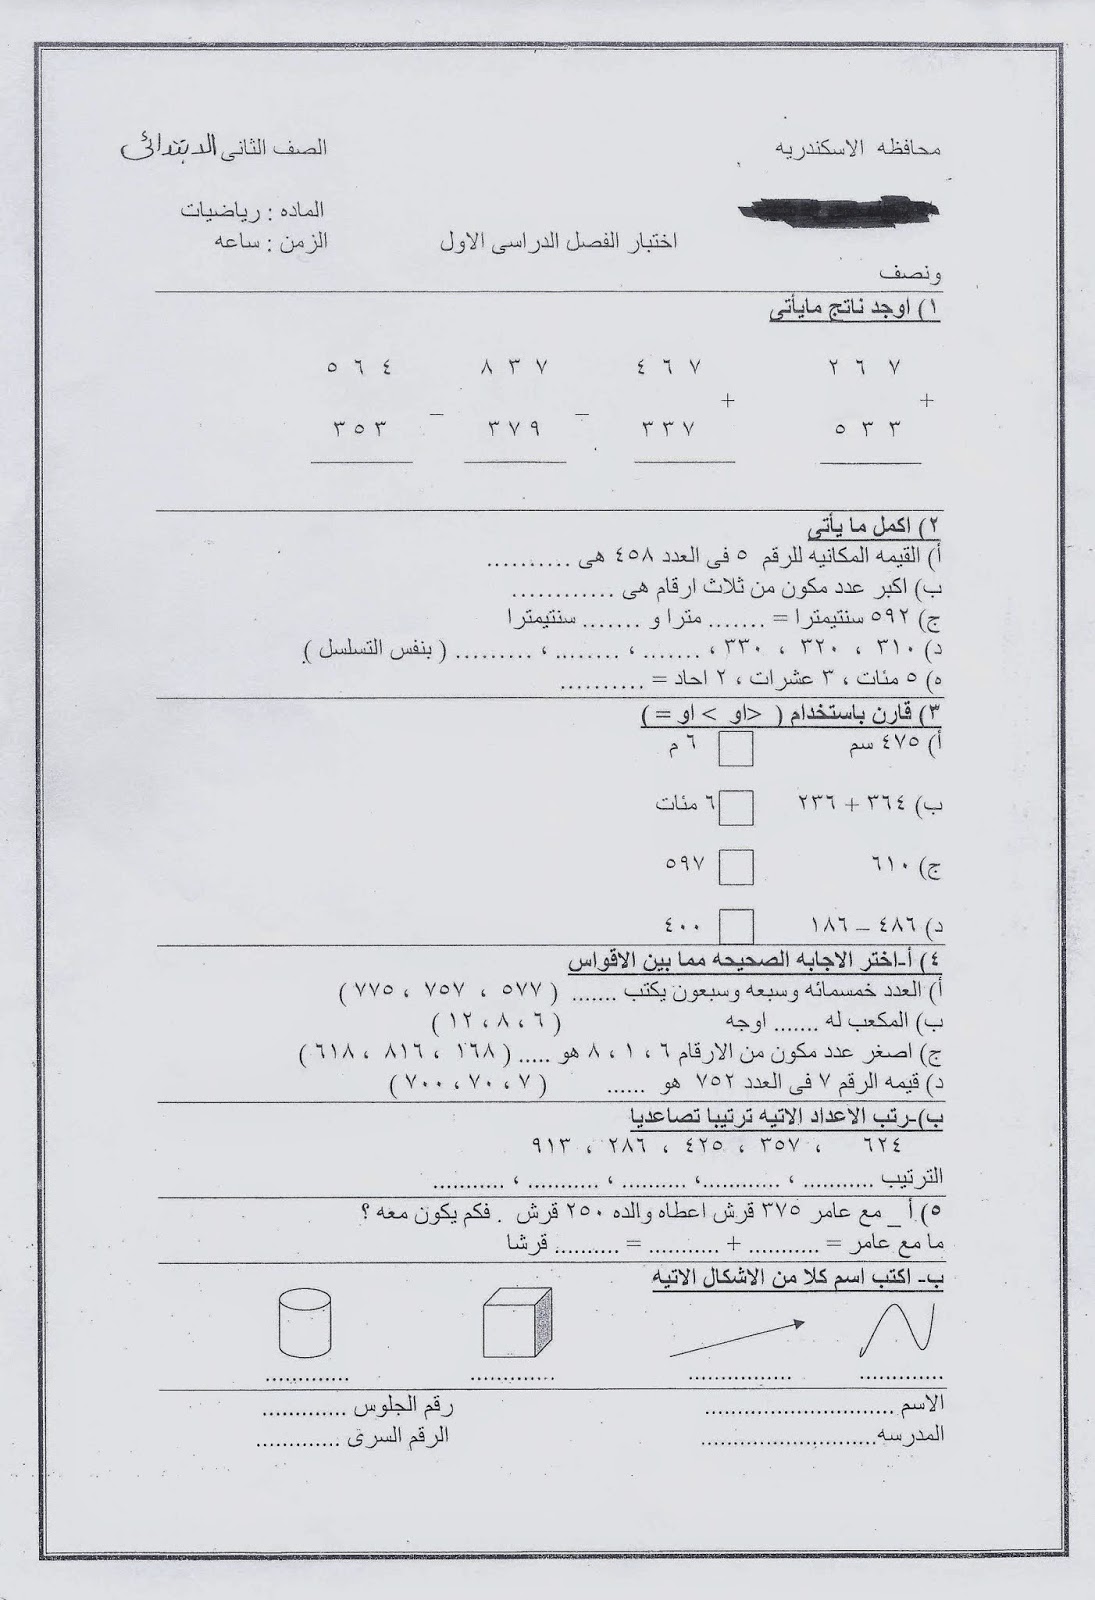 محافظه الاسكندريه
الصف الثانى الابتدائى
الماده : رياضيات
اختبار الفصل الدراسى الاول
الزمن : ساعه
ونصف
١) اوجد ناتج مايأتى
٢ ٦ ٧ ٤ ٦ ٧ ٨ ٣ ٧ ٥ ٦ ٤
+ + − −
٥ ٣ ٣ ٣ ٣ ٧ ٣ ٧ ٩ ٣ ٥ ٣
٢) اكمل ما يأتى
أ) القيمه المكانيه للرقم ٥ فى العدد ٤٥٨ هى ..........
ب) اكبر عدد مكون من ثلاث ارقام هى ............
ج) ٥٩٢ سنتيمترا = ....... مترا و ....... سنتيمترا
د) ٣١٠ ، ٣٢٠ ، ٣٣٠ ، ....... ، ........ ، ......... ( بنفس التسلسل )
ه) ٥ مئات ، ٣ عشرات ، ٢ احاد = ..........
٣) قارن باستخدام ( <او > او = )
أ) ٤٧٥ سم ٦ م
ب) ٣٦٤ + ٢٣٦ ٦ مئات
ج) ٦١٠ ٥٩٧
د) ٤٨٦ – ١٨٦ ٤٠٠
٤) أ-اختر الاجابه الصحيحه مما بين الاقواس
أ) العدد خمسمائه وسبعه وسبعون يكتب ....... ( ٥٧٧ ، ٧٥٧ ، ٧٧٥ )
ب) المكعب له ....... اوجه ( ٦ ، ٨ ، ١٢ )
ج) اصغر عدد مكون من الارقام ٦ ، ١ ، ٨ هو ..... ( ١٦٨ ، ٨١٦ ، ٦١٨ )
د) قيمه الرقم ٧ فى العدد ٧٥٢ هو ...... ( ٧ ، ٧٠ ، ٧٠٠ )
ب)-رتب الاعداد الاتيه ترتيبا تصاعديا
٦٢٤ ، ٣٥٧ ، ٤٢٥ ، ٢٨٦ ، ٩١٣
الترتيب ........... ، ............، .......... ، ........... ، ...........
٥) أ _ مع عامر ٣٧٥ قرش اعطاه والده ٢٥٠ قرش . فكم يكون معه ؟
ما مع عامر = ........... + ........... = .......... قرشا
ب- اكتب اسم كلا من الاشكال الاتيه
............. ................ ............. .............
الاسم ............................. رقم الجلوس .............
المدرسه........................... الرقم السرى .............